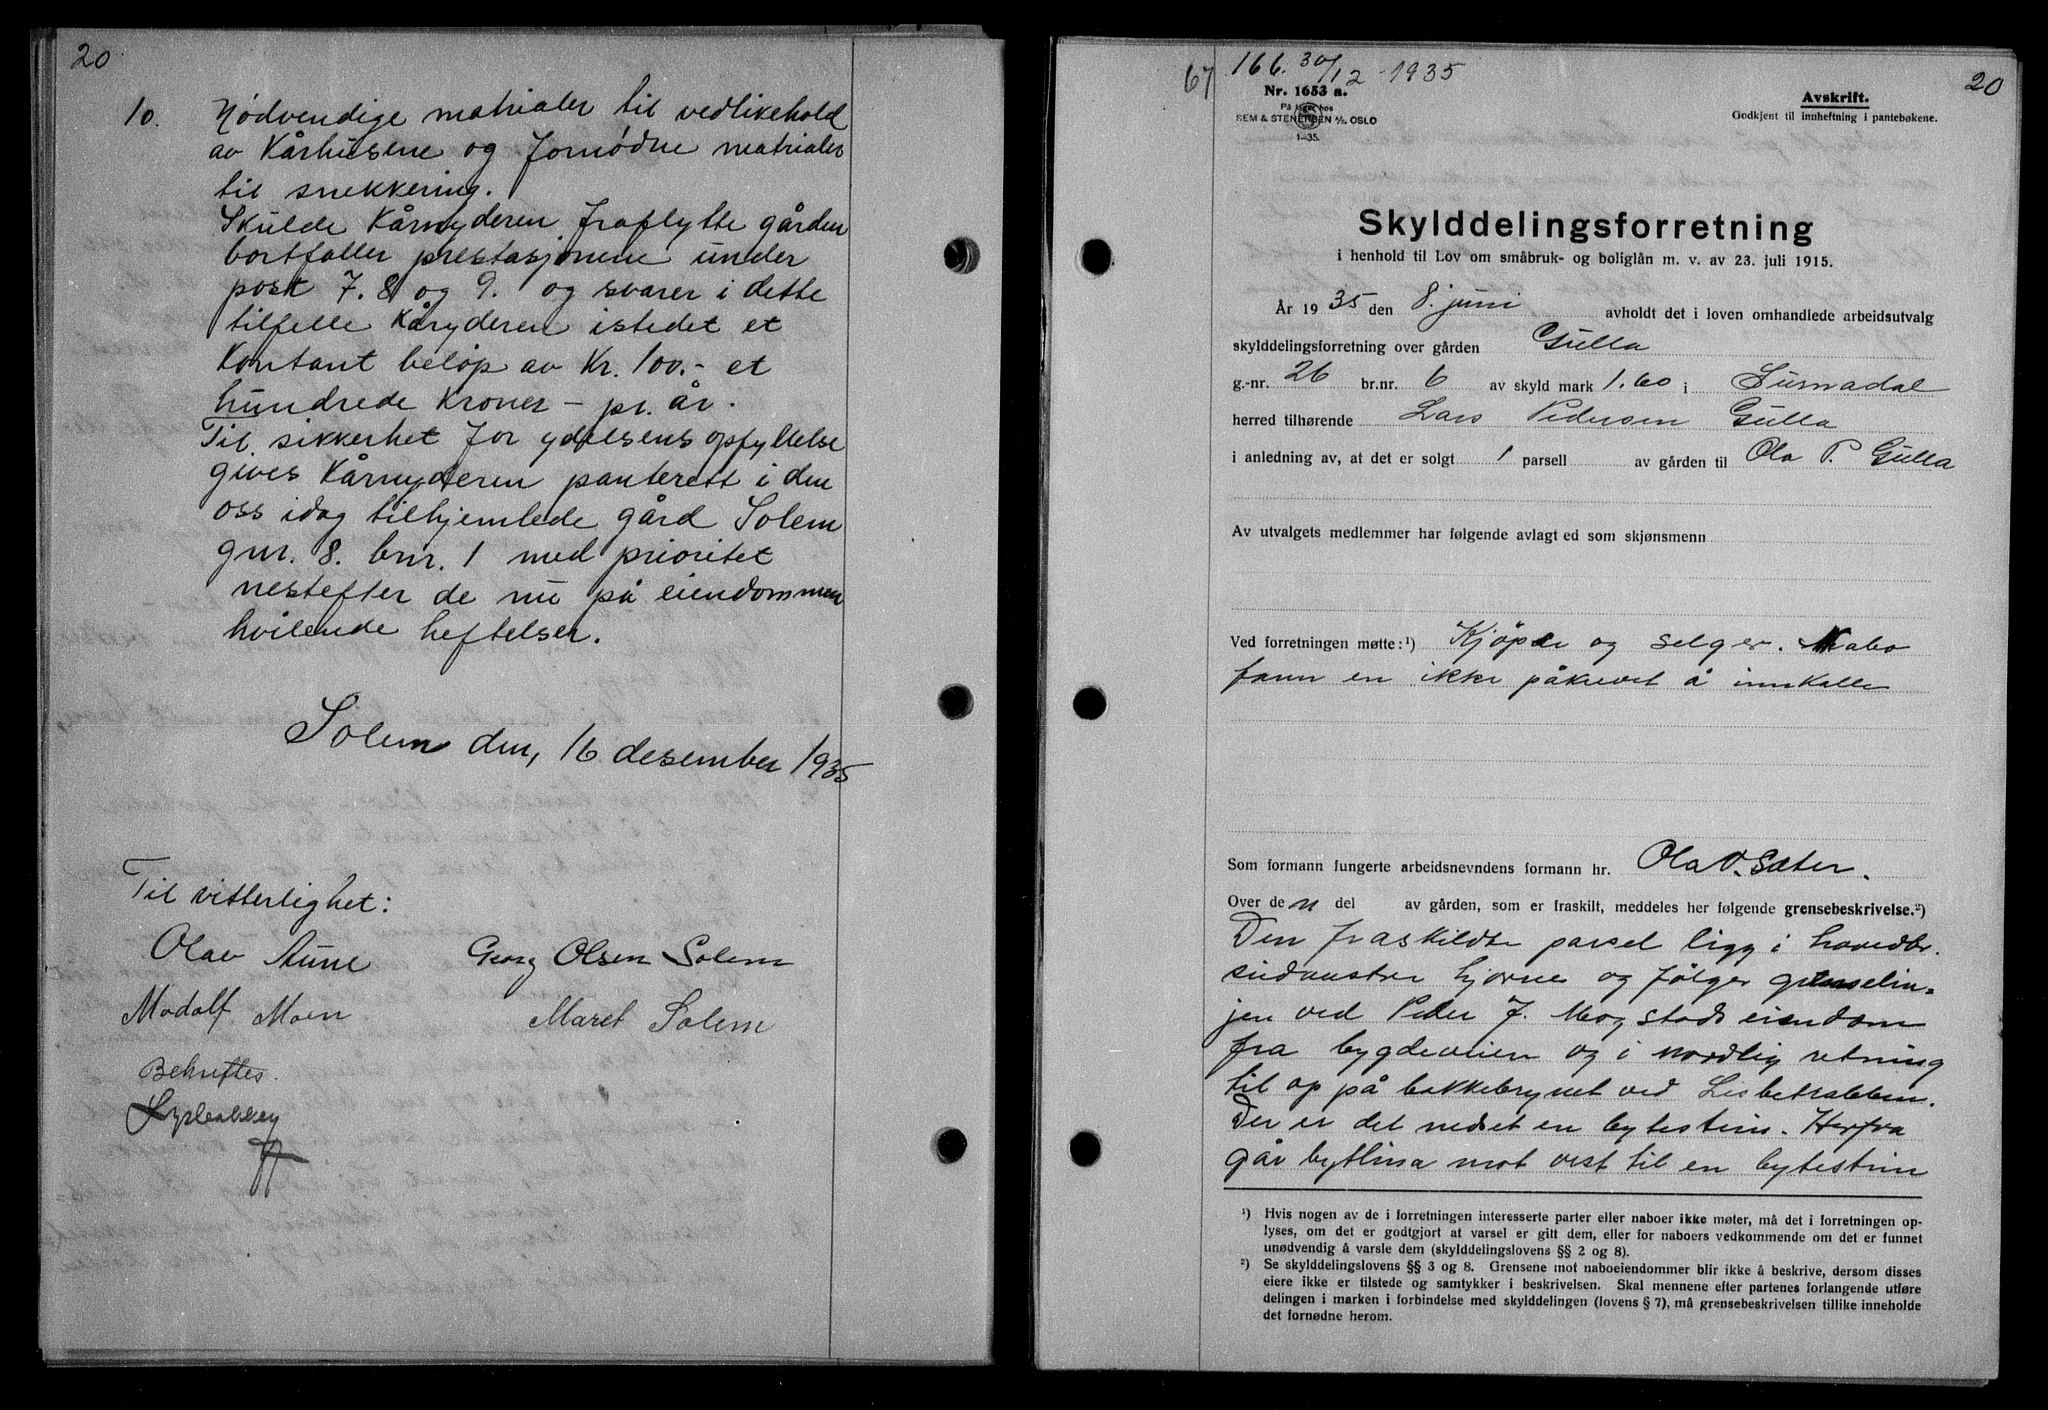 20
10. Nødvendige matrialer til vedlikehold
av Kårhusene og fornødne matrialer
til snekkering.
Skulde Kårnyderen fraflytte gården
bortfaller prestasjonene under
post 7. 8 og 9. og svarer i dette
tilfelle Kårnyderen istedet et
Kontant beløp av Kr. 100.- et
hundrede Kroner - pr. år.
Til sikkerhet for ydelsens opfyllelse
gives Kårnyderen panterett i den
oss idag tilhjemlede gård Solem
gnr. 8. bnr. 1 med prioritet
nestefter de nu på eiendommen
hvilende heftelser.
Solem den, 16 desember 1935
Til vitterlighet:
Olav Aune
Georg Olsen Solem
Modolf Moen
Maret Solem
Bekreftes.
67
166. 30/12-1935
20
Nr. 1653 a.
På lager hos
SEM & STENERSEN A/S OSLO
1-35.
Avskrift.
Godkjent til innheftning i pantebøkene.
Skylddelingsforretning
i henhold til Lov om småbruk- og boliglån m. v. av 23. juli 1915.
År 1935 den 8. juni avholdt det i loven omhandlede arbeidsutvalg
skylddelingsforretning over gården Gulla
g.-nr. 26 br.nr. 6 av skyld mark 1.60 i Surnadal
herred tilhørende Lars Pedersen Gulla
i anledning av, at det er solgt 1 parsell av gården til Ola P. Gulla
Av utvalgets medlemmer har følgende avlagt ed som skjønsmenn
Ved forretningen møtte:¹) Kjøper og selger. Nabo
fann en ikke påkrevet å innkalle
Som formann fungerte arbeidsnevndens formann hr. Ola O. Sæter.
Over den del av gården, som er fraskilt, meddeles her følgende grensebeskrivelse.²)
Den fraskildte parsel ligg i hovedbr.
sudaustre hjørne og følger grenselin=
jen ved Peder J. Mogstads eiendom
fra bygdeveien og i nordlig retning
til op på bakkebrynet ved Lesbetrabben.
Der er det nedset en bytestein. Herfra
går bytlina mot vest til en bytestein
¹) Hvis nogen av de i forretningen interesserte parter eller naboer ikke møter, må det i forretningen op-
lyses, om det er godtgjort at varsel er gitt dem, eller for naboers vedkommende om det er funnet
unødvendig å varsle dem (skylddelingslovens §§ 2 og 8).
²) Se skylddelingslovens §§ 3 og 8. Grensene mot naboeiendommer blir ikke å beskrive, dersom disses
eiere ikke er tilstede og samtykker i beskrivelsen. Skal mennene efter partenes forlangende utføre
delingen i marken i forbindelse med skylddelingen (lovens § 7), må grensebeskrivelsen tillike inneholde
det fornødne herom.